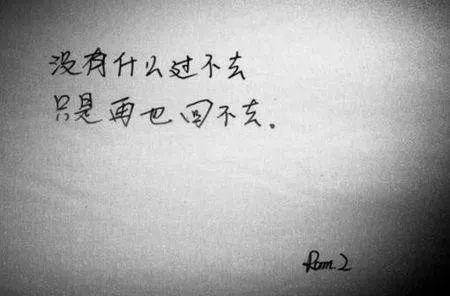 没有什么过不去
只是再也回不去。
Rom.2